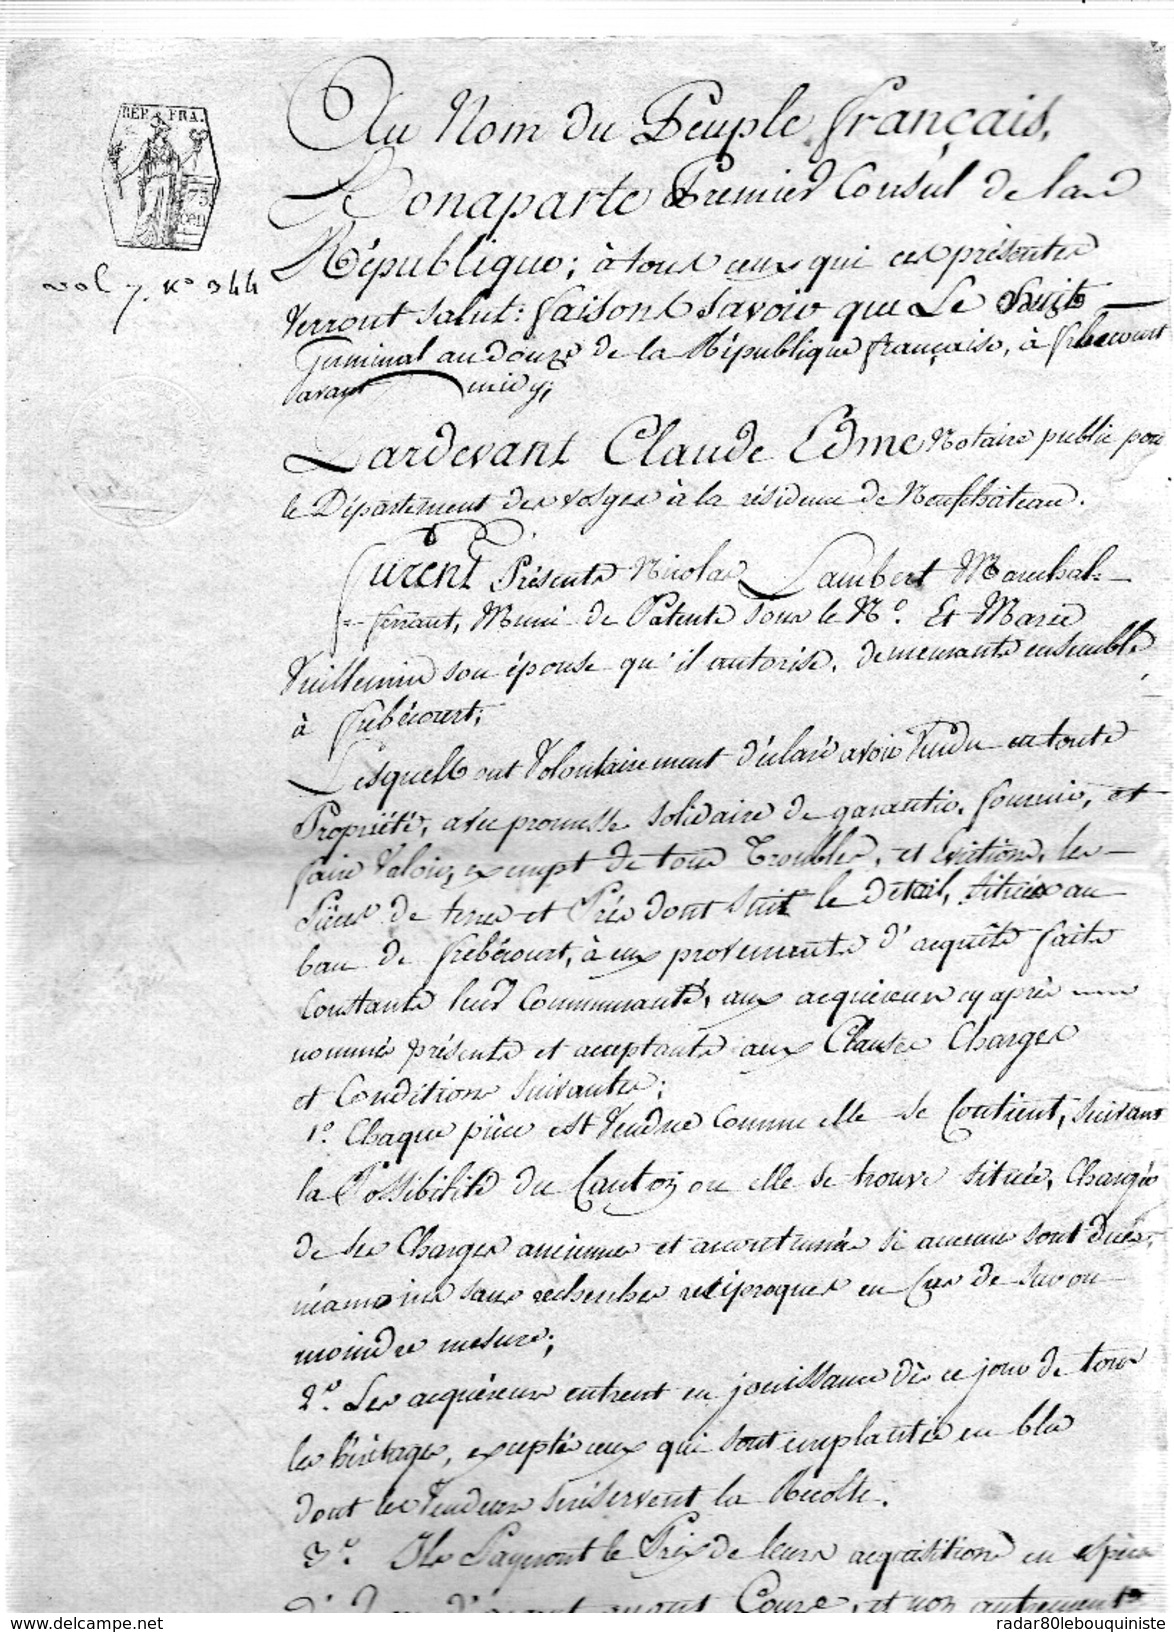 RÉP. FRA.
75
vol 7. No 344
Au Nom du Peuple français,
Bonaparte Premier Consul de la
République; à tous ceux qui ces présentes
verront salut: faisons savoir que Le huit
Germinal an douze de la République française, à frebecourt
avant midy;
Pardevant Claude Edme Notaire public pour
le Département des vosges à la résidence de Neufchâteau.
furent Présents Nicolas Lambert Marechal-
ferrant, Muni de Patente sous le No. Et Marie
Vuillemin son épouse qu'il autorise, demeurants ensemble
à frebécourt;
Lesquels ont Volontairement déclaré avoir Vendu en toute
Propriété, avec promesse solidaire de garantir, fournir, et
faire Valoir, exempt de tous Troubles, et Evictions, les
Pièces de terres et Prés dont suit le détail, situées au
ban de frebécourt, à eux provenants d'acquêts faits
Constante leur Communauté, aux acquéreurs cy après
nommés présents et acceptants aux Clauses Charges
et Conditions suivantes;
1o. Chaque pièce est Vendue comme elle se Contient, suivant
la Possibilité du Canton où elle se trouve située, Chargée
de ses Charges anciennes et accoutumées si aucunes sont dues,
néamoins sans recherches réciproques en Cas de plus ou
moindre mesure;
2o. Les acquéreurs entrent en jouissance dès ce jour de tous
les héritages, exceptés ceux qui sont implantés en bled
dont les Vendeurs se réservent la Récolte.
3o. Ils Payeront le Prix de leurs acquisitions en espèces
d'Or, d'argent ayant Cours, et non autrement
radar80lebouquiniste